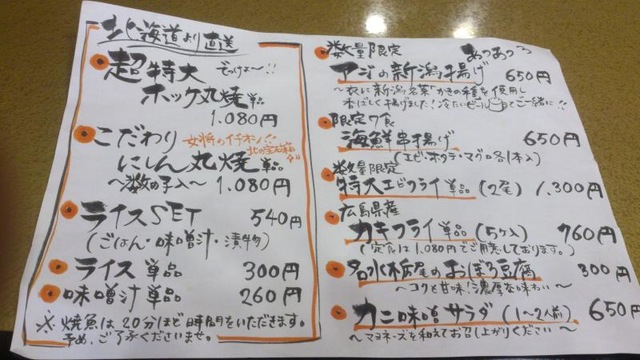 北海道より直送
超特大 でっけぇ〜!!
ホッケ丸焼 単品
1.080円
こだわり 女将のイチオシ!!
にしん丸焼 単品
〜数の子入〜 1.080円
ライスSET 540円
(ごはん・味噌汁・漬物)
ライス 単品 300円
味噌汁 単品 260円
※焼魚は20分ほど時間をいただきます。
予め、ご了承くださいませ。
数量限定 あっつあつ
アジの新潟揚げ 650円
〜衣に新潟名菓"かきの種を使用し
香ばしく揚げました!冷たいビールとご一緒に!!
限定7食
海鮮串揚げ 650円
(エビ・ホタテ・マグロ各1本入)
数量限定
特大エビフライ単品(2尾) 1,300円
広島県産
カキフライ 単品(5ヶ入) 760円
(定食は1.080円でご用意しております。)
名水栃尾のおぼろ豆腐 300円
〜コクと甘味!濃厚な味わい〜
カニ味噌サラダ(1〜2人前) 650円
〜マヨネーズを和えてお召し上がりください〜